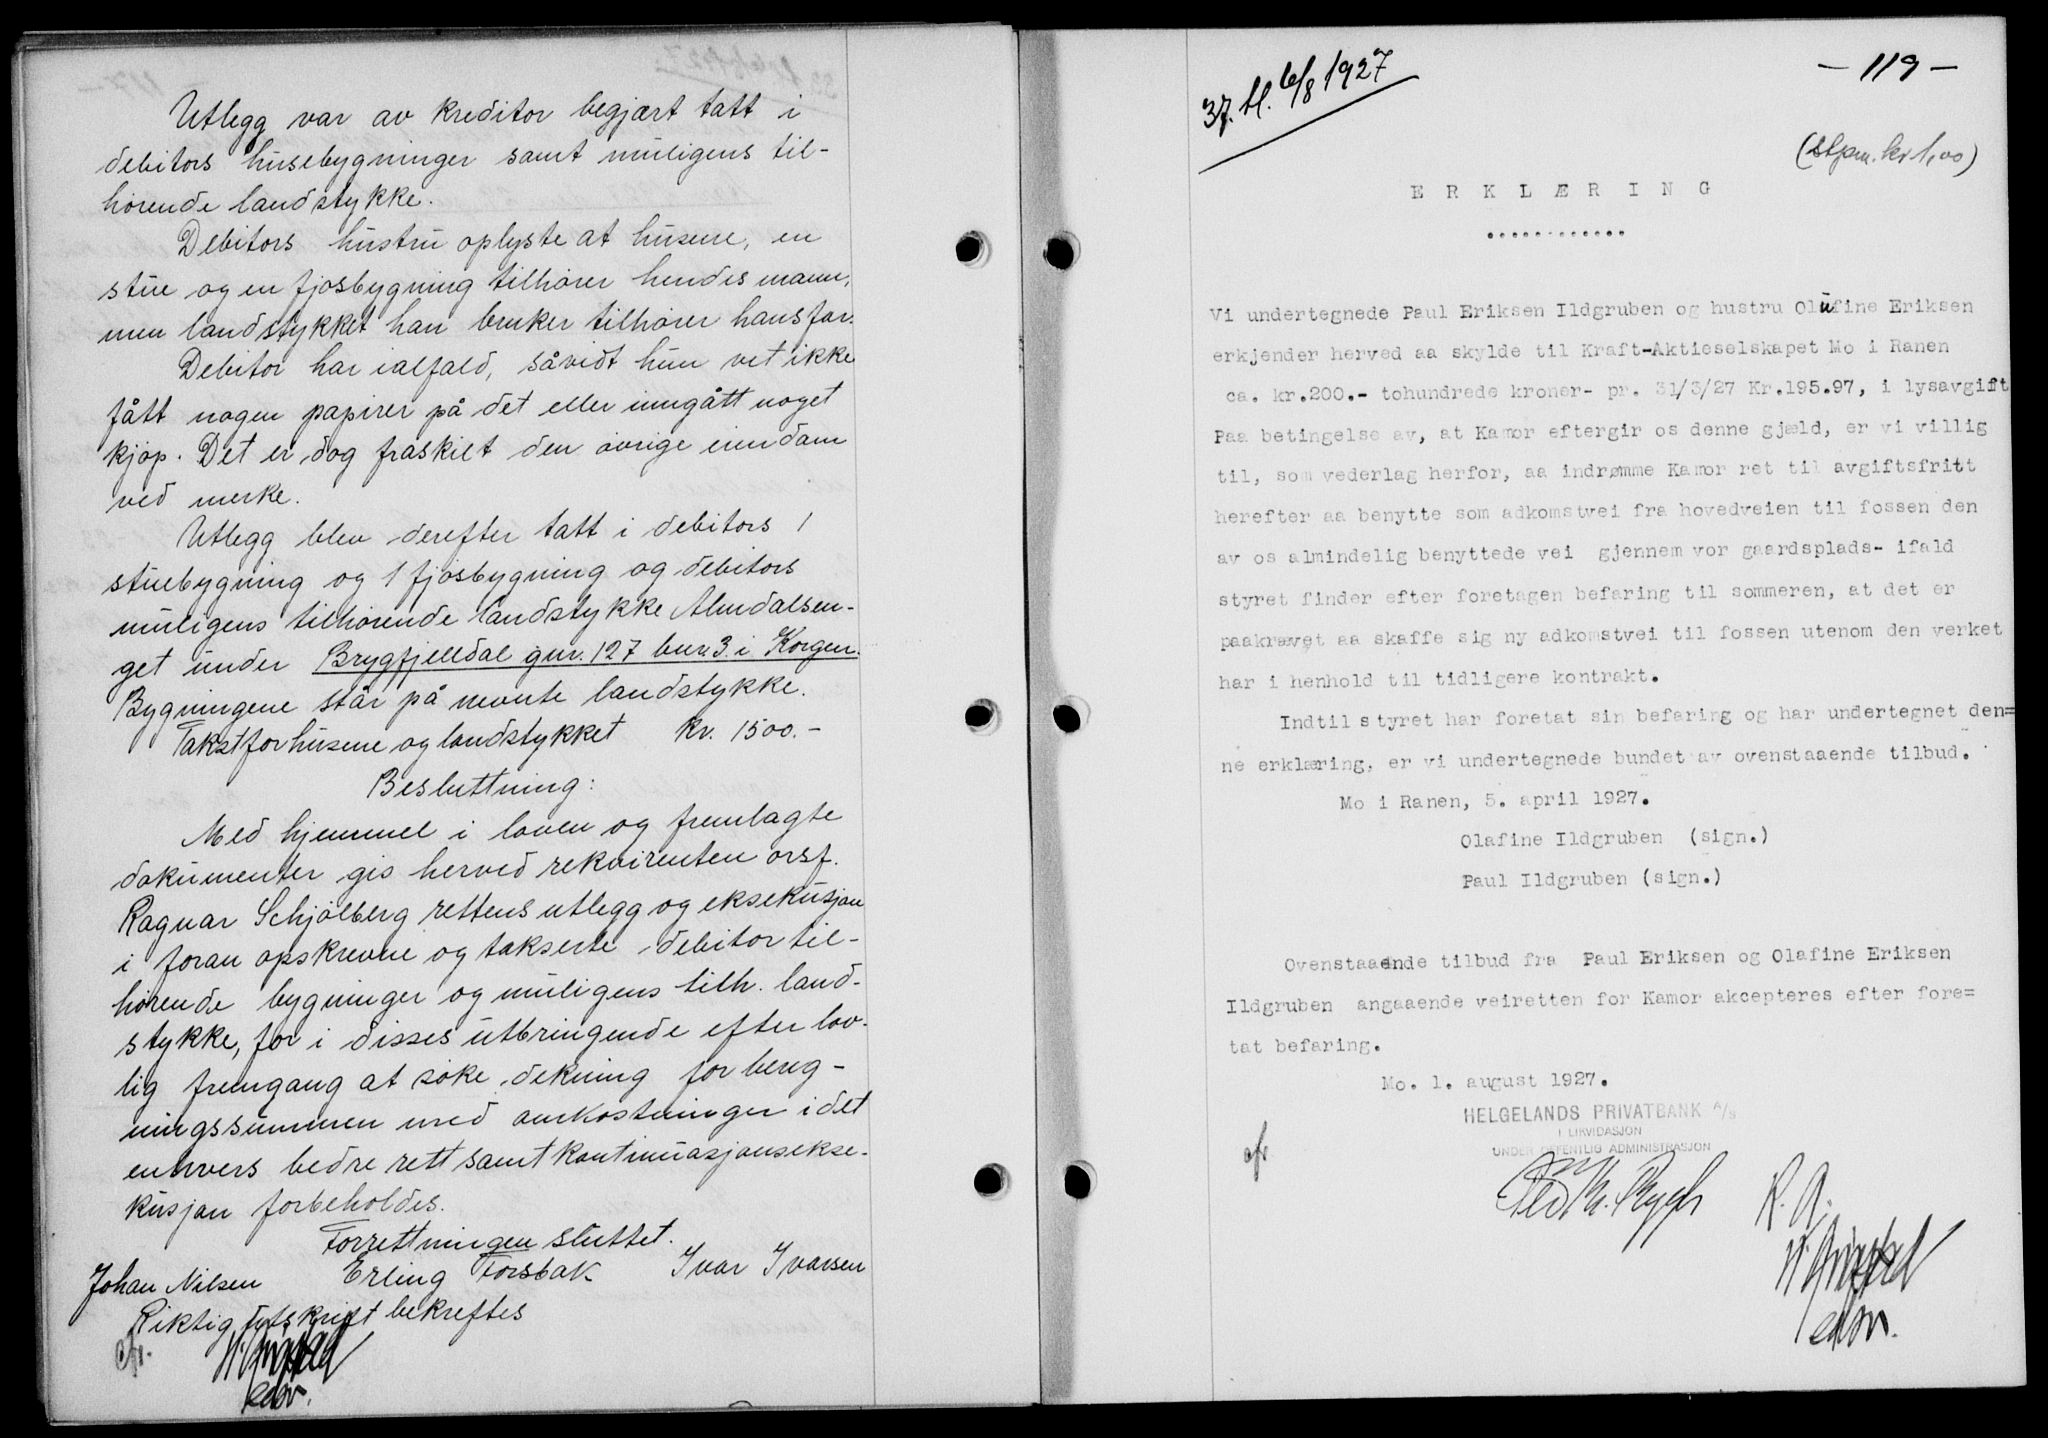 Utlegg var av kreditor begjært tatt i
debitors husebygninger samt muligens til-
hörende landstykke.
Debitors hustru oplyste at husene, en
stue og en fjösbygning tilhörer hendes mann,
men landstykket han bruker tilhörer hans far.
Debitor har ialfald, såvidt hun vet ikke
fått nogen papirer på det eller inngått noget
kjöp. Det er dog fraskilt den övrige eiendom
ved merke.
Utlegg blev derefter tatt i debitors 1
stuebygning og 1 fjösbygning og debitors
muligens tilhörende landstykke Almdalsen-
get under Brygfjelldal gnr. 127 bnr. 3 i Korgen.
Bygningene står på nevnte landstykke.
Takst for husene og landstykket kr. 1500.-
Besluttning:
Med hjemmel i loven og fremlagte
dokumenter gis herved rekvirenten orsf.
Ragnar Schjölberg rettens utlegg og eksekusjon
i foran opskrevne og takserte debitor til-
hörende bygninger og muligens tilh. land-
stykke, for i disses utbringende efter lov-
lig fremgang at söke dekning for bereg-
ningssummen med omkostninger i det
enhvers bedre rett samt kontinuasjonsekse-
kusjon forbeholdes.
Forrettningen sluttet.
Johan Nilsen Erling Forsbak Ivar Ivarsen
Riktig utskrift bekreftes
cfr.
edsv.
37. bl. 6/8 1927
- 119 -
(Stpm. kr 1,00)
E R K L Æ R I N G
............
Vi undertegnede Paul Eriksen Ildgruben og hustru Olufine Eriksen
erkjender herved aa skylde til Kraft-Aktieselskapet Mo i Ranen
ca. kr.200.- tohundrede kroner- pr. 31/3/27 Kr.195.97, i lysavgift
Paa betingelse av, at Kamor eftergir os denne gjæld, er vi villig
til, som vederlag herfor, aa indrømme Kamor ret til avgiftsfritt
herefter aa benytte som adkomstvei fra hovedveien til fossen den
av os almindelig benyttede vei gjennem vor gaardsplads- ifald
styret finder efter foretagen befaring til sommeren, at det er
paakrævet aa skaffe sig ny adkomstvei til fossen utenom den verket
har i henhold til tidligere kontrakt.
Indtil styret har foretat sin befaring og har undertegnet den=
ne erklæring, er vi undertegnede bundet av ovenstaaende tilbud.
Mo i Ranen, 5. april 1927.
Olafine Ildgruben (sign.)
Paul Ildgruben (sign.)
Ovenstaaende tilbud fra Paul Eriksen og Olafine Eriksen
Ildgruben angaaende veiretten for Kamor akcepteres efter fore=
tat befaring.
Mo. 1. august 1927.
HELGELANDS PRIVATBANK A/S
I LIKVIDASJON
UNDER OFFENTLIG ADMINISTRASJON
cfr
R. A.
edsv.